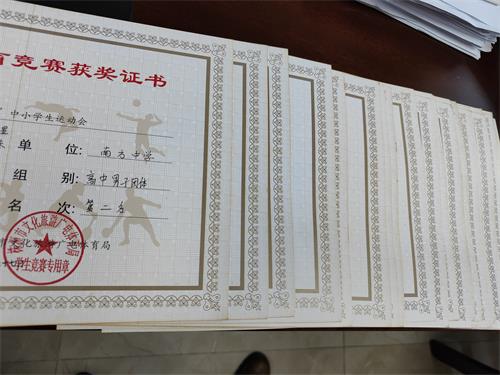 育竞赛获奖证书
中小学生运动会
单 位: 南方中学
组 别: 高中男子团体
名 次: 第二名
市文化旅游广电体育局
学生竞赛专用章
广电体育局